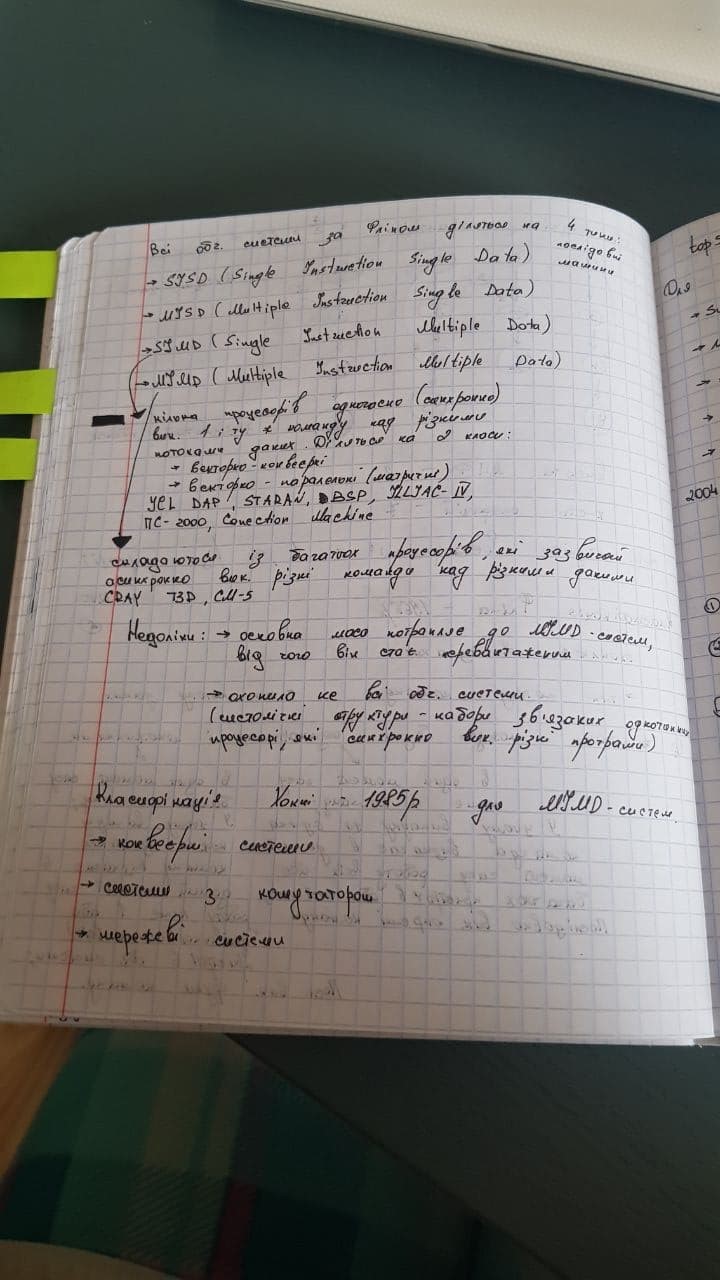 Всі обч. системи за Фліном діляться на 4 типи:
→ SISD (Single Instruction Single Data) послідовні машини
→ MISD (Multiple Instruction Single Data)
→ SIMD (Single Instruction Multiple Data)
→ MIMD (Multiple Instruction Multiple Data)
кілька процесорів одночасно (синхронно)
вик. 1 і ту ж команду над різними
потоками даних. Діляться на 2 класи:
→ векторно-конвеєрні
→ векторно-паралельні (матричні)
ICL DAP, STARAN, BSP, ILLIAC-IV,
ПС-2000, Conection Machine
складаються із багатьох процесорів, які зазвичай
асинхронно вик. різні команди над різними даними
CRAY T3D, CM-5
Недоліки: → основна маса потрапляє до MIMD-систем,
від чого він стає перевантаженим
→ охопило не всі обч. системи
(систолічні структури - набори зв'язаних однотипних
процесорі, які синхронно вик. різні програми)
Класифікація Хокні - 1985р для MIMD-систем.
→ конвеєрні системи
→ системи з комутатором
→ мережеві системи
top5
Для
2004